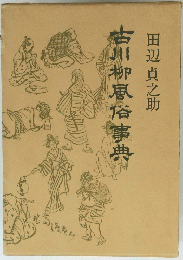 田辺貞之助
古川柳風俗事典